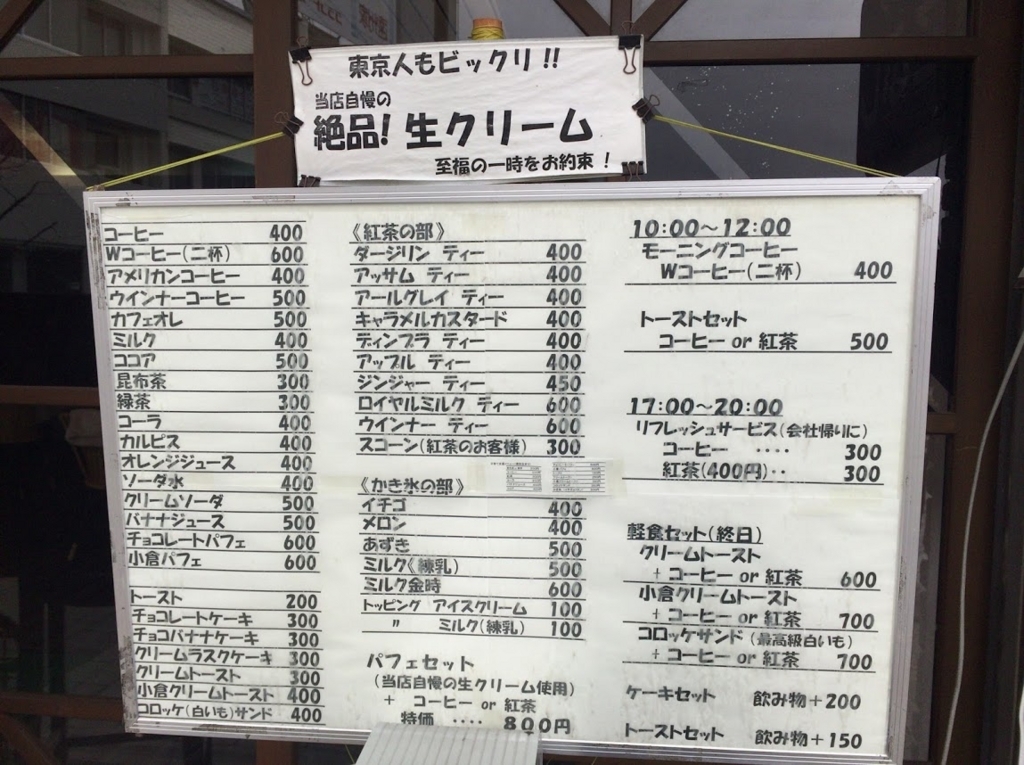 東京人もビックリ!!
当店自慢の
絶品! 生クリーム
至福の一時をお約束!
コーヒー 400
Wコーヒー(二杯) 600
アメリカンコーヒー 400
ウインナーコーヒー 500
カフェオレ 500
ミルク 400
ココア 500
昆布茶 300
緑茶 300
コーラ 400
カルピス 400
オレンジジュース 400
ソーダ水 400
クリームソーダ 500
バナナジュース 500
チョコレートパフェ 600
小倉パフェ 600
トースト 200
チョコレートケーキ 300
チョコバナナケーキ 300
クリームラスクケーキ 300
クリームトースト 300
小倉クリームトースト 400
コロッケ(白いも)サンド 400
《紅茶の部》
ダージリン ティー 400
アッサム ティー 400
アールグレイ ティー 400
キャラメルカスタード 400
ティンブラ ティー 400
アップル ティー 400
ジンジャー ティー 450
ロイヤルミルク ティー 600
ウインナー ティー 600
スコーン(紅茶のお客様) 300
《かき氷の部》
イチゴ 400
メロン 400
あずき 500
ミルク(練乳) 500
ミルク金時 600
トッピング アイスクリーム 100
〃 ミルク(練乳) 100
パフェセット
(当店自慢の生クリーム使用)
+ コーヒー or 紅茶
特価 ‥‥ 800円
10:00～12:00
モーニングコーヒー
Wコーヒー(二杯) 400
トーストセット
コーヒー or 紅茶 500
17:00～20:00
リフレッシュサービス(会社帰りに)
コーヒー ‥‥ 300
紅茶(400円)‥ 300
軽食セット(終日)
クリームトースト
+ コーヒー or 紅茶 600
小倉クリームトースト
+ コーヒー or 紅茶 700
コロッケサンド(最高級白いも)
+ コーヒー or 紅茶 700
ケーキセット 飲み物+200
トーストセット 飲み物+150